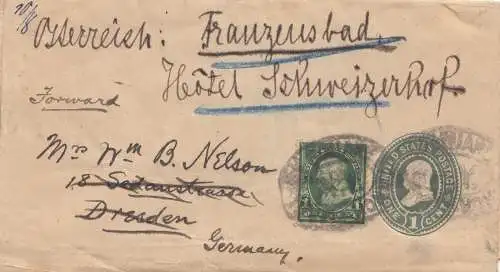 Österreich: Franzensbad.
Hôtel Schweizerhof.
Forward
Mrs Wm B. Nelson
18 Sedanstrasse
Dresden
Germany.
UNITED STATES POSTAGE
ONE 1 CENT